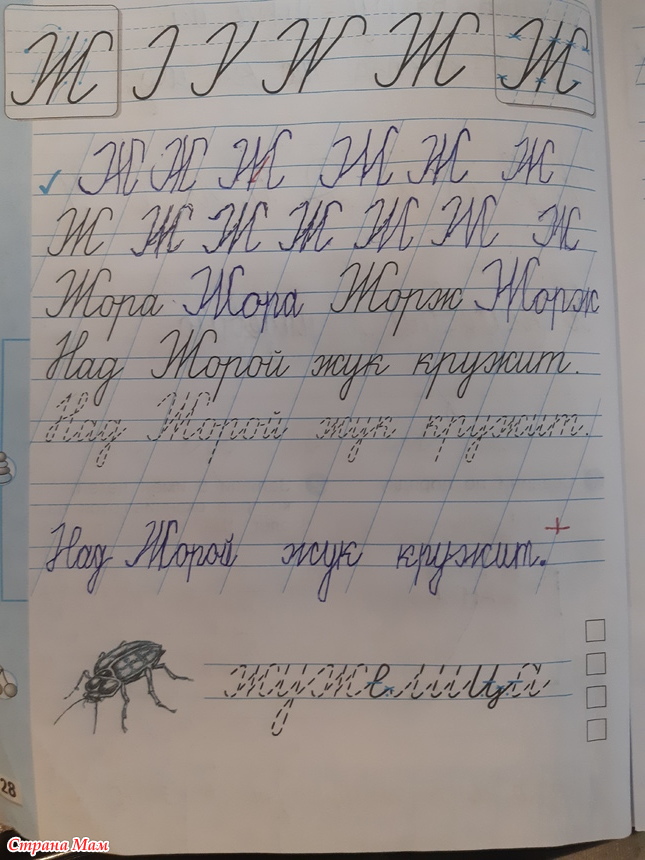 Ж Ж Ж Ж
Ж Ж Ж Ж Ж Ж
Ж Ж Ж Ж Ж Ж Ж
Жора Жора Жорж Жорж
Над Жорой жук кружит.
Над Жорой жук кружит.
Над Жорой жук кружит.
жужелица
28
Страна Мам